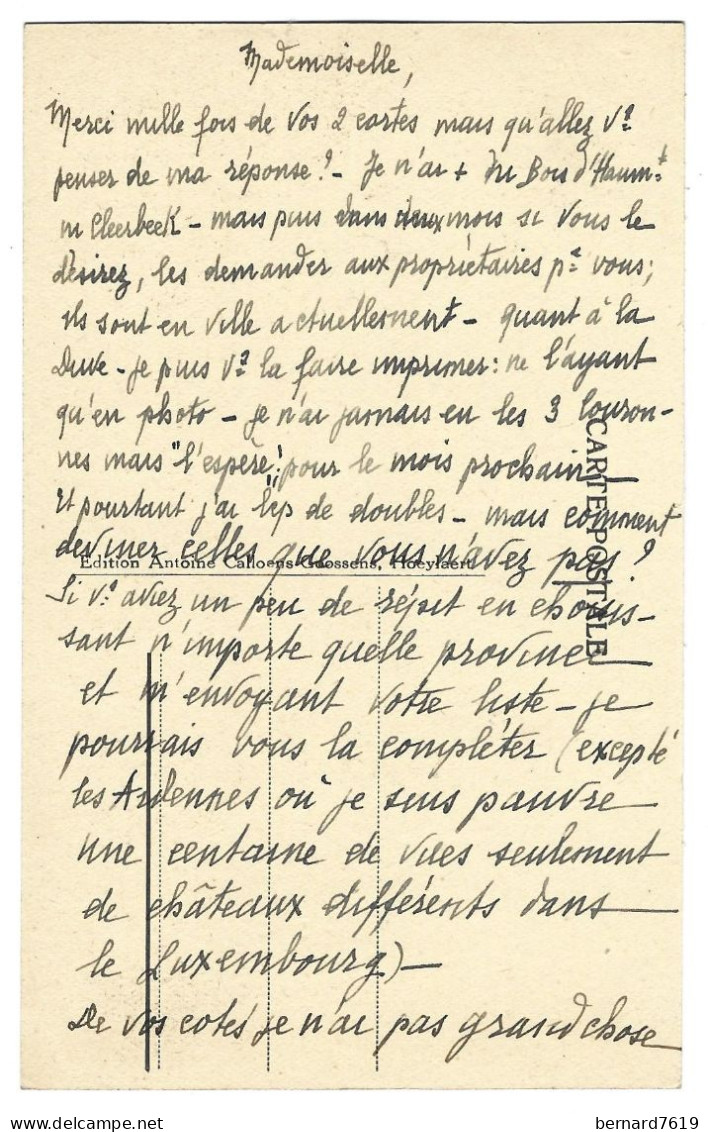 Mademoiselle,
Merci mille fois de vos 2 cartes mais qu'allez vs
penser de ma réponse? - Je n'ai + du Bois d'Haumt
ni Cleerbeek - mais puis dans deux mois si vous le
désirez, les demander aux propriétaires pr vous;
ils sont en ville actuellement - quant à la
Duve - je puis vs la faire imprimer: ne l'ayant
qu'en photo - je n'ai jamais eu les 3 Couron-
nes mais "l'espère" pour le mois prochain
Et pourtant j'ai de doubles - mais comment
devinez celles que vous n'avez pas?
Edition Antoine Calloens-Goossens, Hoeylaert
CARTE POSTALE
Si vs aviez un peu de répit en choisis-
sant n'importe quelle province
et m'envoyant votre liste - je
pourrais vous la compléter (excepté
les Ardennes où je suis pauvre
une centaine de vues seulement
de châteaux différents dans
le Luxembourg) -
De vos cotés je n'ai pas grand chose
bernard7619